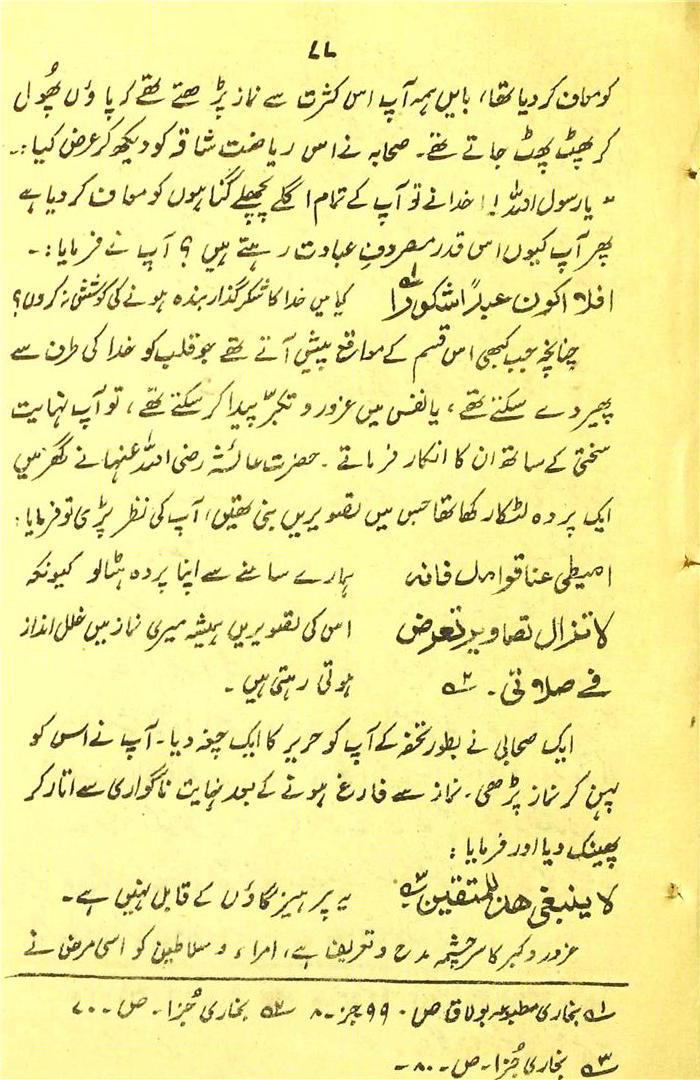 ۷۷
کو معاف کر دیا تھا، بایں ہمہ آپ اس کثرت سے نماز پڑھتے تھے کہ پاؤں پھُول
کر پھٹ پھٹ جاتے تھے۔ صحابہ نے اس ریاضت شاقہ کو دیکھ کر عرض کیا:۔
"یا رسول اللہ!! خدا نے تو آپ کے تمام اگلے پچھلے گناہوں کو معاف کر دیا ہے
پھر آپ کیوں اس قدر مصروفِ عبادت رہتے ہیں؟ آپ نے فرمایا:۔
افلا اکون عبداً شکورا ؂۱ کیا میں خدا کا شکر گذار بندہ ہونے کی کوشش نہ کروں؟
چنانچہ جب کبھی اس قسم کے مواقع پیش آتے تھے جو قلب کو خدا کی طرف سے
پھیر دے سکتے تھے، یا نفس میں غرور و تکبّر پیدا کر سکتے تھے، تو آپ نہایت
سختی کے ساتھ ان کا انکار فرماتے۔ حضرت عائشہ رضی اللہ عنہا نے گھر میں
ایک پردہ لٹکا رکھا تھا جس میں تصویریں بنی تھیں، آپ کی نظر پڑی تو فرمایا:
امیطی عنا قوامک فانہ ہمارے سامنے سے اپنا پردہ ہٹالو کیونکہ
لا تزال تصاویر تعرض اس کی تصویریں ہمیشہ میری نماز میں خلل انداز
فے صلاتی۔ ؂۲ ہوتی رہتی ہیں۔
ایک صحابی نے بطور تحفہ کے آپ کو حریر کا ایک چغہ دیا۔ آپ نے اس کو
پہن کر نماز پڑھی۔ نماز سے فارغ ہونے کے بعد نہایت ناگواری سے اتار کر
پھینک دیا اور فرمایا:
لا ینبغی ھذا للمتقین ؂۳ یہ پرہیزگاؤں کے قابل نہیں ہے۔
غرور و کبر کا سرچشمہ مدح و تعریف ہے، امراء و سلاطین کو اسی مرض نے
؂۱ بخاری مطبوعہ بولاق ص۔ ۹۹ جز۔ ۸ ؂۲ بخاری جُز۱۔ ص۔ ۷۰
؂۳ بخاری جُز۱۔ ص۔ ۸۰۔